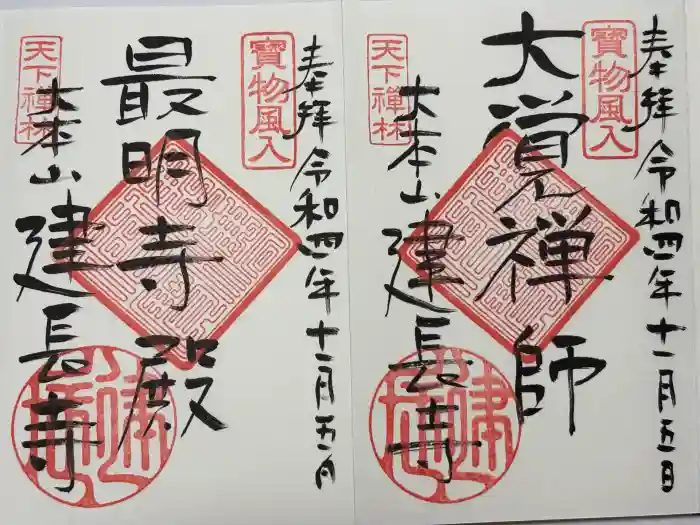 大覚禅師
奉拝 令和四年十一月五日
寶物風入
天下禅林
大本山 建長寺
最明寺殿
奉拝 令和四年十一月五日
寶物風入
天下禅林
大本山 建長寺